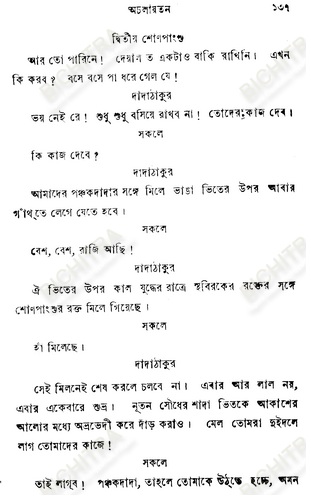 অচলায়তন ১৩৭
দ্বিতীয় শোণপাংশু
আর তো পারিনে! দেয়াল ত একটাও বাকি রাখিনি। এখন
কি করব? বসে বসে পা ধরে গেল যে!
দাদাঠাকুর
ভয় নেই রে! শুধু শুধু বসিয়ে রাখব না! তোদের কাজ দেব।
সকলে
কি কাজ দেবে?
দাদাঠাকুর
আমাদের পঞ্চকদাদার সঙ্গে মিলে ভাঙা ভিতের উপর আবার
গাঁথ্‌তে লেগে যেতে হবে।
সকলে
বেশ, বেশ, রাজি আছি!
দাদাঠাকুর
ঐ ভিতের উপর কাল যুদ্ধের রাত্রে স্থবিরকের রক্তের সঙ্গে
শোণপাংশুর রক্ত মিলে গিয়েছে।
সকলে
হাঁ মিলেছে।
দাদাঠাকুর
সেই মিলনেই শেষ করলে চলবে না। এবার আর লাল নয়,
এবার একেবারে শুভ্র। নূতন সৌধের শাদা ভিতকে আকাশের
আলোর মধ্যে অভ্রভেদী করে দাঁড় করাও। মেল তোমরা দুইদলে
লাগ তোমাদের কাজে!
সকলে
তাই লাগ্‌ব! পঞ্চকদাদা, তাহলে তোমাকে উঠ্‌তে হচ্চে, অমন
BICHITRA